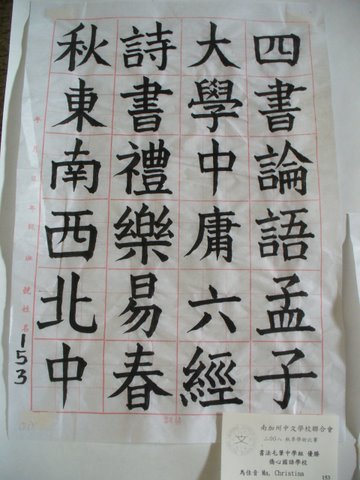 四書論語孟子
大學中庸六經
詩書禮樂易春
秋東南西北中
153
南加州中文學校聯合會
二00八 秋季學術比賽
書法毛筆中學組 優勝
僑心國語學校
馬佳音 Ma, Christina
153